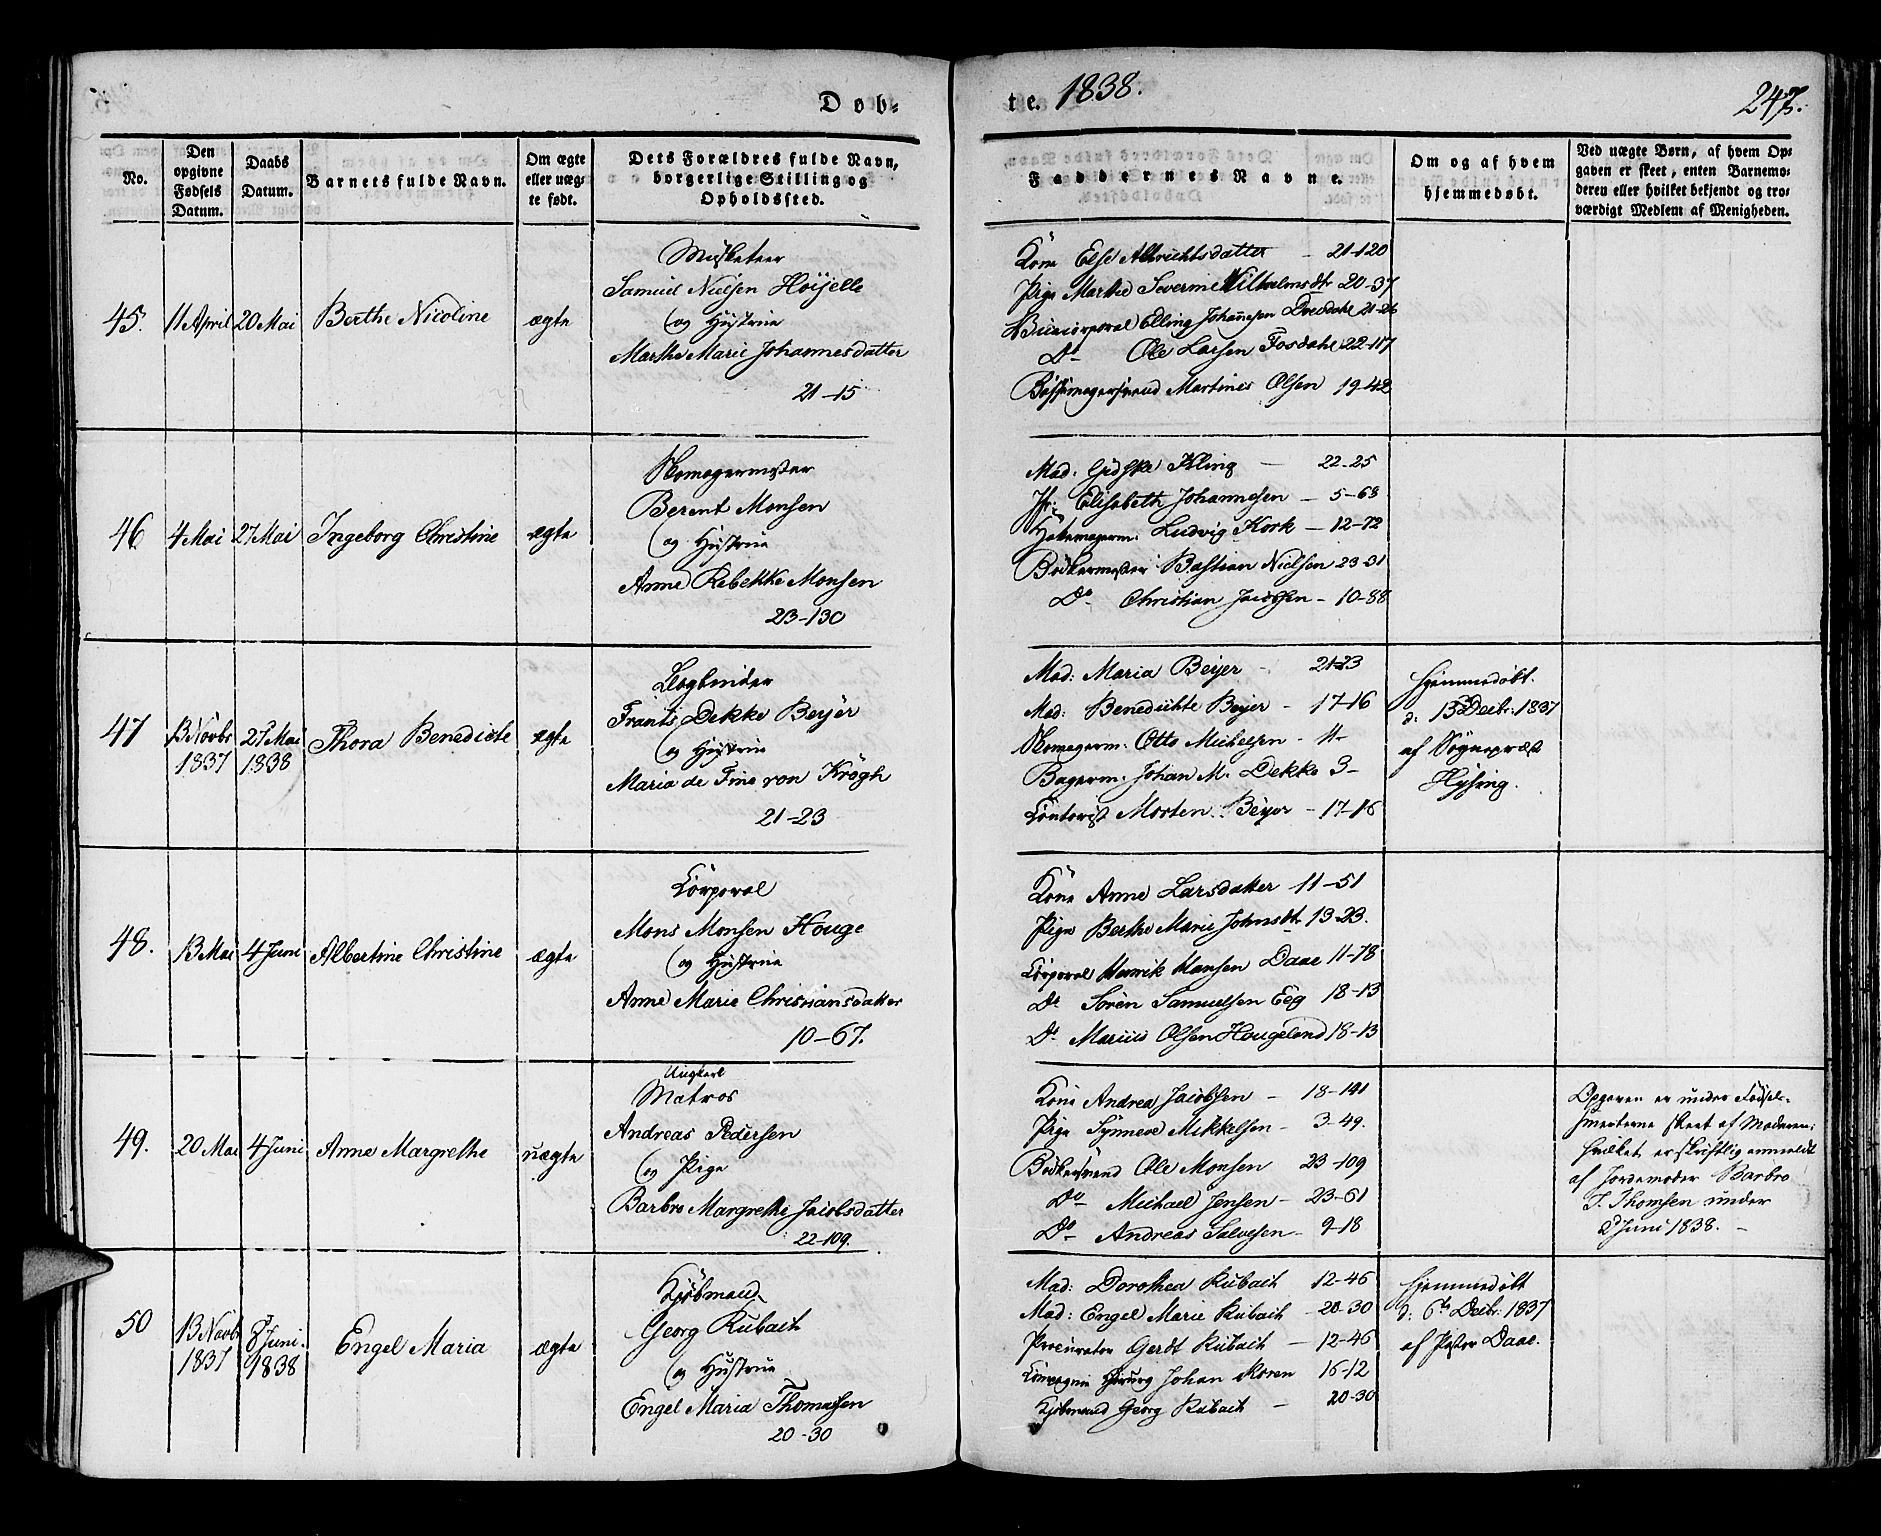 Døb-
te. 1838.
247.
No.
Den
opgivne
Fødsels
Datum.
Daabs
Datum.
Barnets fulde Navn.
Om ægte
eller uæg-
te født.
Dets Forældres fulde Navn,
borgerlige Stilling og
Opholdssted.
Faddernes Navne.
Om og af hvem
hjemmedøbt.
Ved uægte Børn, af hvem Op-
gaven er skeet, enten Barnemo-
deren eller hvilket bekjendt og tro-
værdigt Medlem af Menigheden.
45.
11 April
20 Mai
Berthe Nicoline
ægte
Musketeer
Samuel Nielsen Höijelle
og Hustrue
Marthe Marie Johannesdatter
21-15
Kone Else Albrichtsdatter - 21-120
Pige Marthe Severine Wilhelmsdtr 20-37
Elling Johannesen 21-26
Do- Ole Larsen Fosdahl 22-117
Bössemagersvend Martines Olsen 19-42
46
4 Mai
27 Mai
Ingeborg Christine
ægte
Berent Monsen
og Hustrue
Anne Rebekke Monsen
23-130
Mad. Gidske Kling - 22-25
Jfr: Elisabeth Johannesen - 5-63
Ludvig Kork - 12-72
Bödkermester Bastian Nielsen 23-31
Do- Christian Jacobsen - 10-88
47
13 Novbr
1837
27 Mai
1838
Thora Benedicte
ægte
Bogbinder
Frants Dekke Beyer
og Hustrue
Maria de Fine von Krogh
21-23
Mad: Maria Beyer - 21-23
Mad: Benedichte Beyer - 17-16
Otto Michelsen - 4-
Bagerm. Johan M. Dekke 3-
Contorist Morten Beyer - 17-16
Hjemmedöbt
d. 13 Decbr. 1837
af Sogneprest
Hysing.
48.
13 Mai
4 Juni
Albertine Christine
ægte
Corporal
Mons Monsen Houge
og Hustrue
Anne Marie Christiansdatter
10-67.
Kone Anne Larsdatter 11-51
Pige Berthe Marie Johnsdtr 13-23.
Corporal Henrik Hansen Daae 11-78
Do Sören Samuelsen Eeg 18-13
Do. Marius Olsen Hougeland 18-13
49.
20 Mai
4 Juni
Anne Margrethe
uægte
Ungkarl
Matros
Andreas Pedersen
og Pige
Barbro Margrethe Jacobsdatter
22-109.
Kone Andrea Jacobsen - 18-141
Pige Synneve Mikkelsen - 3-49.
Bödkersvend Ole Monsen 23-109
Do- Michael Jensen - 23-61
Do- Andreas Salvesen - 9-18
Opgaven er under Födsels-
smerterne skeet af Moderen;
hvilket er skriftlig anmeldt
af Jordemoder Barbro
J. Thomsen under
2 Juni 1838. -
50
13 Novbr
1837
8 Juni.
1838
Engel Maria
ægte
Kjöbmand
Georg Kubach
og Hustrue
Engel Maria Thomesen
20-30
Mad: Dorothea Kubach 12-46
Mad: Engel Marie Kubach - 20-30
Procurator Gerdt Kubach - 12-46
Compagnie Chirurg Johan Koren 16-12
Kjöbmand Georg Kubach - 20-30
Hjemmedöbt
d: 6te Decbr: 1837
af Pastor Daae.